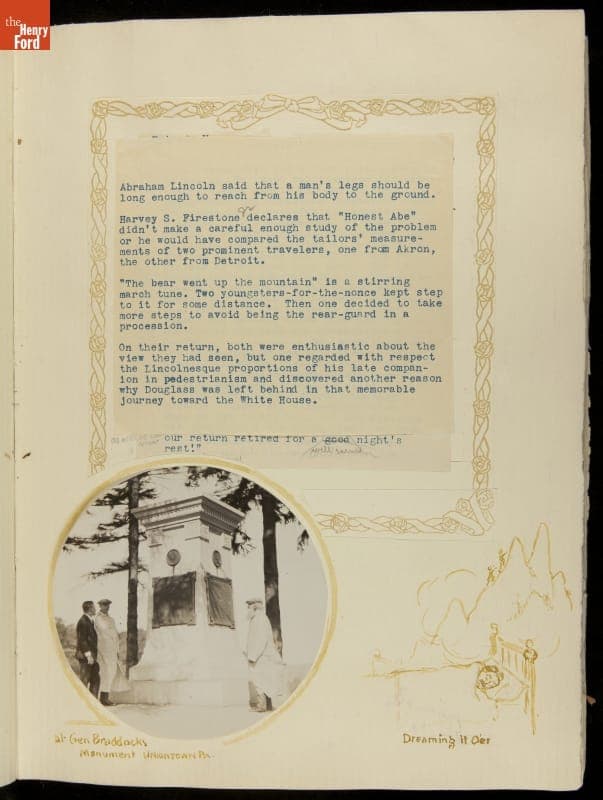 the
Henry
Ford
Abraham Lincoln said that a man's legs should be
long enough to reach from his body to the ground.
Harvey S. Firestone declares that "Honest Abe"
didn't make a careful enough study of the problem
or he would have compared the tailors' measure-
ments of two prominent travelers, one from Akron,
the other from Detroit.
"The bear went up the mountain" is a stirring
march tune. Two youngsters-for-the-nonce kept step
to it for some distance. Then one decided to take
more steps to avoid being the rear-guard in a
procession.
On their return, both were enthusiastic about the
view they had seen, but one regarded with respect
the Lincolnesque proportions of his late compan-
ion in pedestrianism and discovered another reason
why Douglass was left behind in that memorable
journey toward the White House.
our return retired for a good night's
rest!"
at Gen Braddocks
Monument Uniontown Pa.
Dreaming it O'er